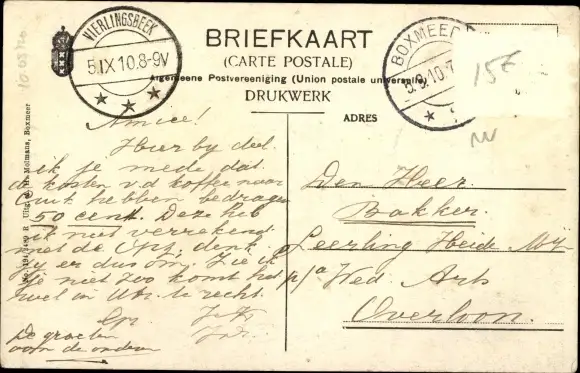 VIERLINGSBEEK
5.IX.10.8-9V
BRIEFKAART
(CARTE POSTALE)
Algemeene Postvereeniging (Union postale universelle)
DRUKWERK
ADRES
BOXMEER
5.9.10.7
15E
Amice!
Hierbij deel
ik je mede dat
de kosten v.d. koffer naar
Cuik hebben bedragen
50 cent. Deze heb
ik niet verrekend
met de
denk
jij er dus om. Zie ik
je niet zoo komt het
wel in
te recht.
De groeten
aan de anderen
Den Heer
Bakker.
Leerling Heide Mij
p/a Wed. Arts
Overloon.
Boxmeer